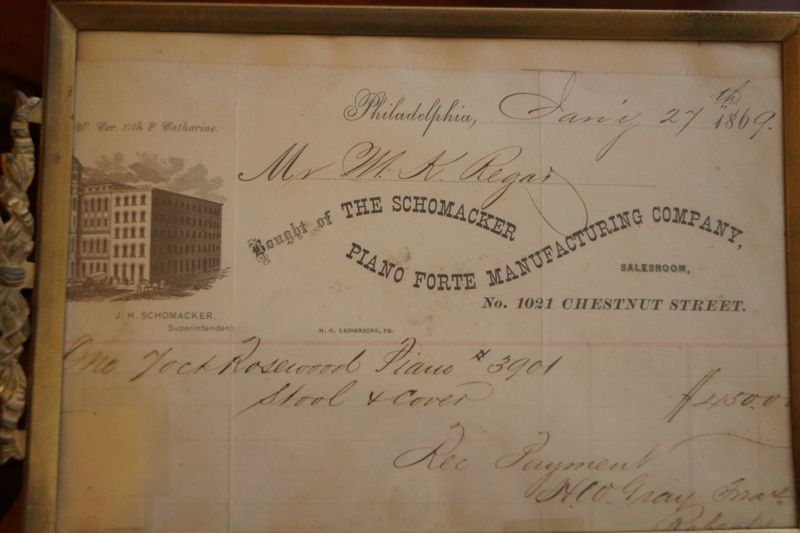 Cor. 11th & Catharine.
Philadelphia, Jan'y 27th 1869.
Mr W. K. Regar
Bought of THE SCHOMACKER
PIANO FORTE MANUFACTURING COMPANY,
SALESROOM,
No. 1021 CHESTNUT STREET.
J. H. SCHOMACKER,
Superintendent.
H. G. LEISENRING, PR.
One 7 Oct Rosewood Piano # 3901
Stool & Cover $450.0
Rec Payment
H.W. Gray